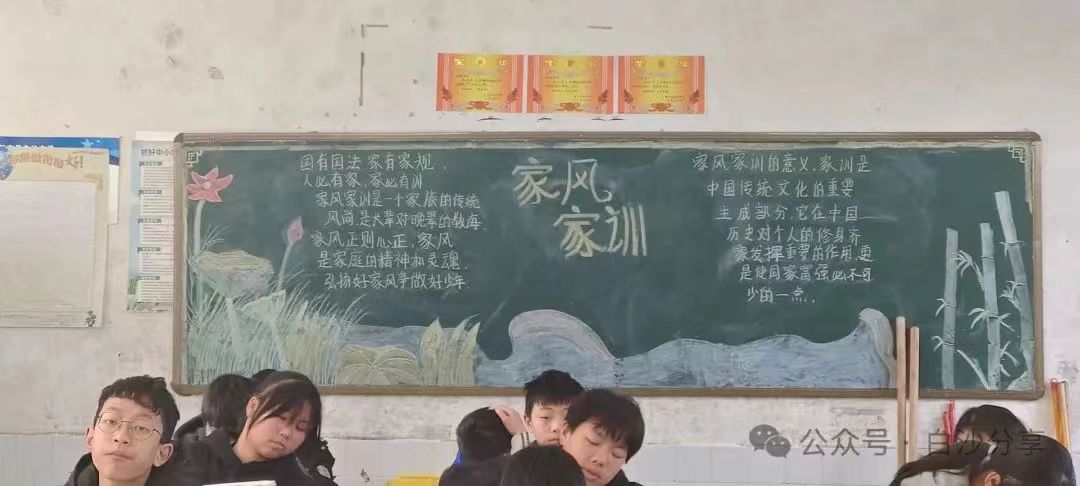 抓好中小
国有国法 家有家规,
人必有家,家必有训
家风家训是一个家族的传统
风尚.是大辈对晚辈的教诲.
家风正则心正,家风
是家庭的精神和灵魂,
弘扬好家风争做好少年
家风
家训
家风家训的意义,家训是
中国传统文化的重要
主成部分,它在中国
历史对个人的修身齐
家发挥重要的作用,更
是使国家富强必不可
少的一点.
公众号·白沙分享